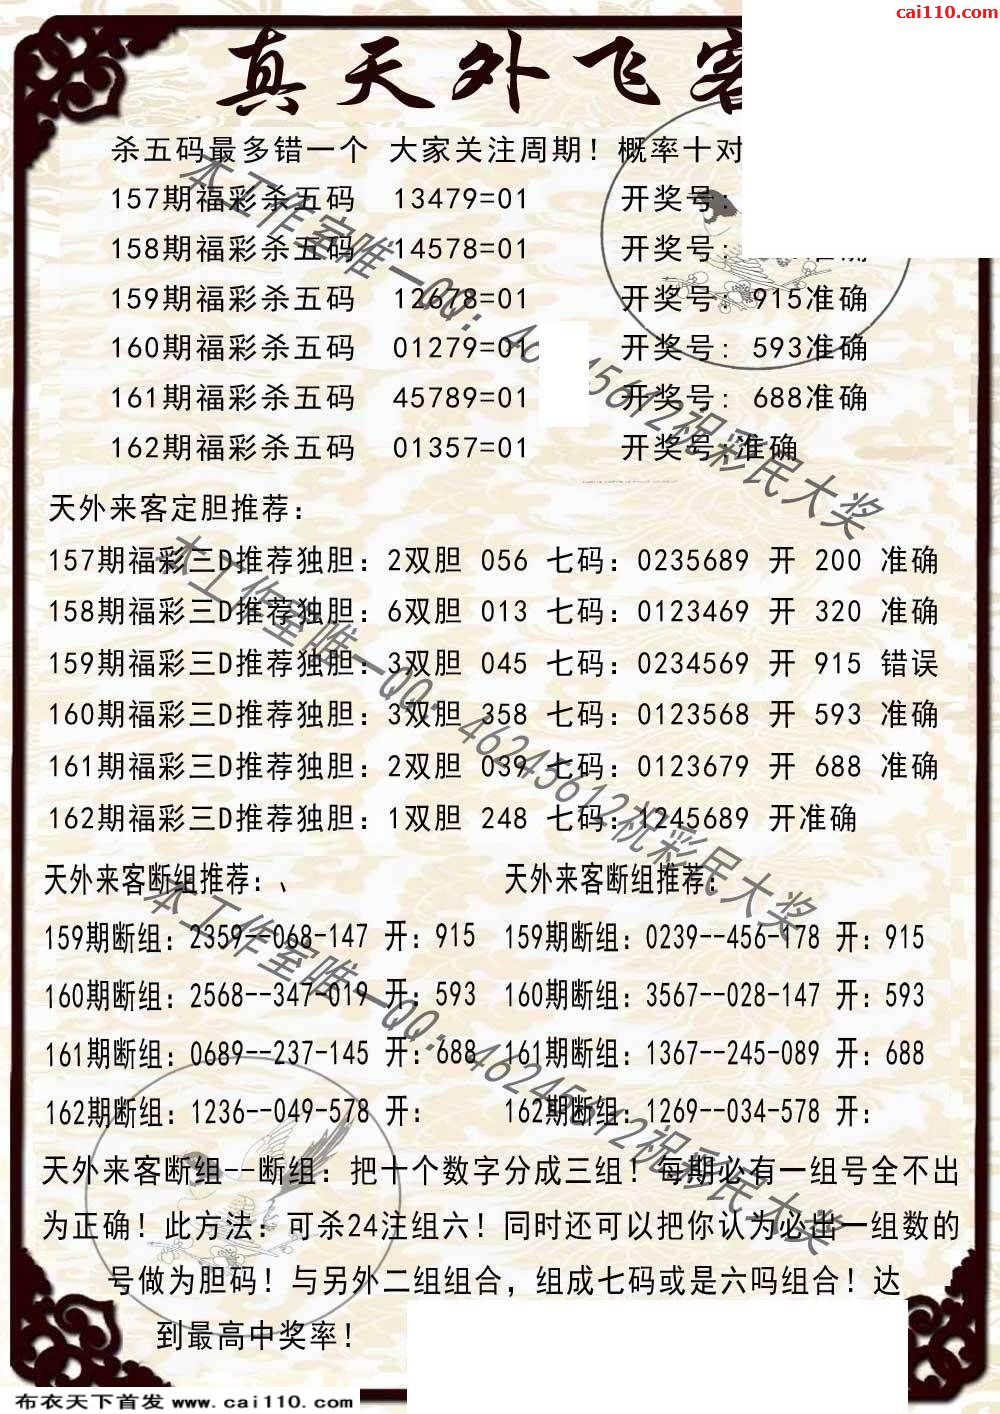 cai110.com
真天外飞客
杀五码最多错一个 大家关注周期！概率十对
157期福彩杀五码 13479=01 开奖号:
158期福彩杀五码 14578=01 开奖号: 准确
159期福彩杀五码 12678=01 开奖号: 915准确
160期福彩杀五码 01279=01 开奖号: 593准确
161期福彩杀五码 45789=01 开奖号: 688准确
162期福彩杀五码 01357=01 开奖号:准确
天外来客定胆推荐:
157期福彩三D推荐独胆: 2双胆 056 七码: 0235689 开 200 准确
158期福彩三D推荐独胆: 6双胆 013 七码: 0123469 开 320 准确
159期福彩三D推荐独胆: 3双胆 045 七码: 0234569 开 915 错误
160期福彩三D推荐独胆: 3双胆 358 七码: 0123568 开 593 准确
161期福彩三D推荐独胆: 2双胆 039 七码: 0123679 开 688 准确
162期福彩三D推荐独胆: 1双胆 248 七码: 1245689 开准确
天外来客断组推荐:、 天外来客断组推荐:
159期断组: 2359--068-147 开: 915 159期断组: 0239--456-178 开: 915
160期断组: 2568--347-019 开: 593 160期断组: 3567--028-147 开: 593
161期断组: 0689--237-145 开: 688 161期断组: 1367--245-089 开: 688
162期断组: 1236--049-578 开: 162期断组: 1269--034-578 开:
天外来客断组--断组: 把十个数字分成三组！每期必有一组号全不出
为正确！此方法: 可杀24注组六！同时还可以把你认为必出一组数的
号做为胆码！与另外二组组合，组成七码或是六吗组合！达
到最高中奖率！
本工作室唯一QQ: 46245612祝彩民大奖
本工作室唯一QQ: 46245612祝彩民大奖
本工作室唯一QQ: 46245612祝彩民大奖
布衣天下首发 www.cai110.com